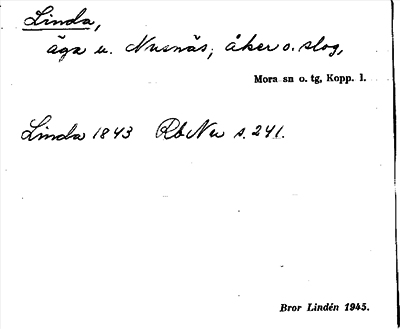 Linda,
äga u. Nusnäs; åker o. slog,
Mora sn o. tg, Kopp. l.
Linda 1843 RbNu s. 241.
Bror Lindén 1945.